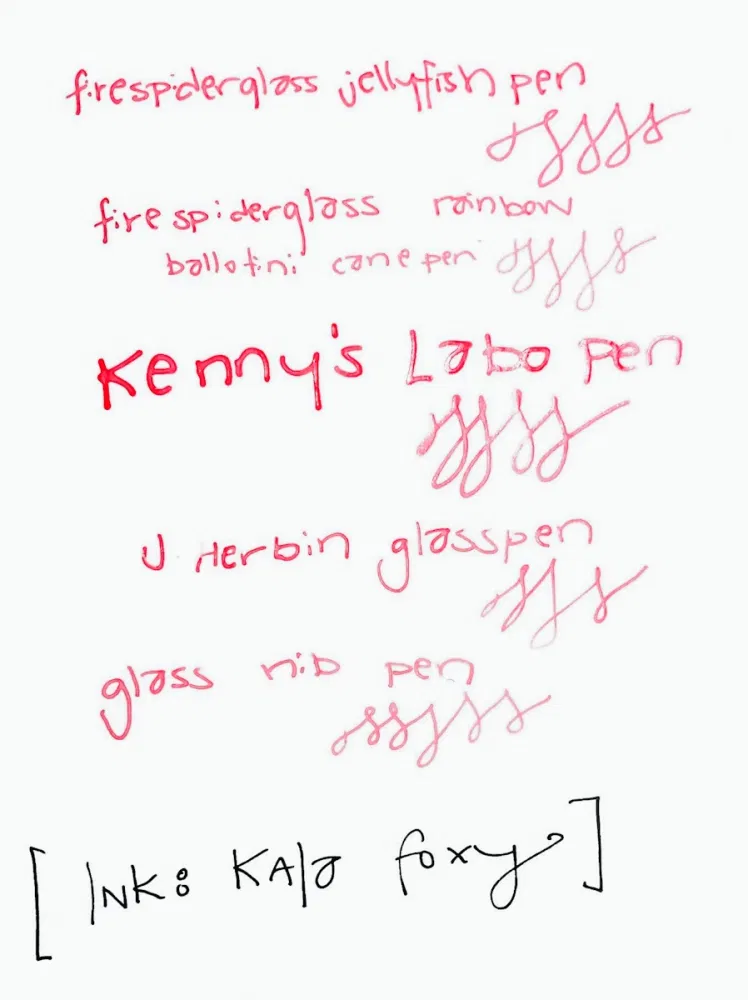 firespiderglass jellyfish pen
firespiderglass rainbow
ballotini cane pen
Kenny's Labo pen
J Herbin glasspen
glass nib pen
[INK: KALA foxy]